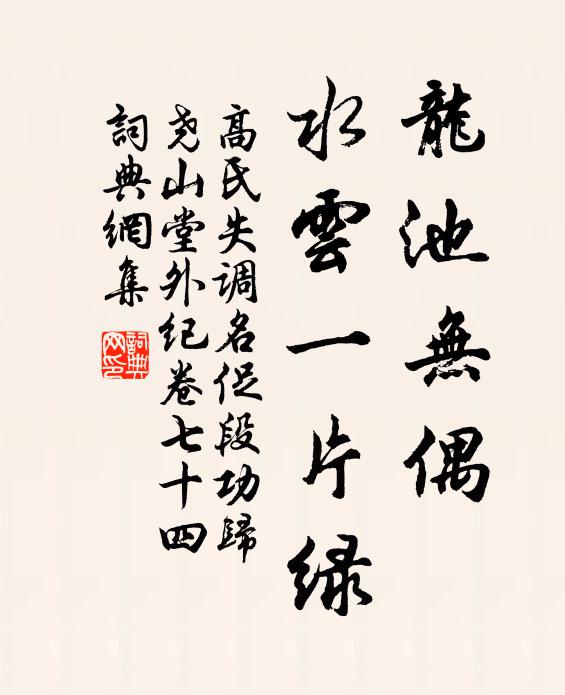 龍池無偶
水雲一片绿
高氏失调名促段功歸
尧山堂外纪卷七十四
詞典網集
詞典网印